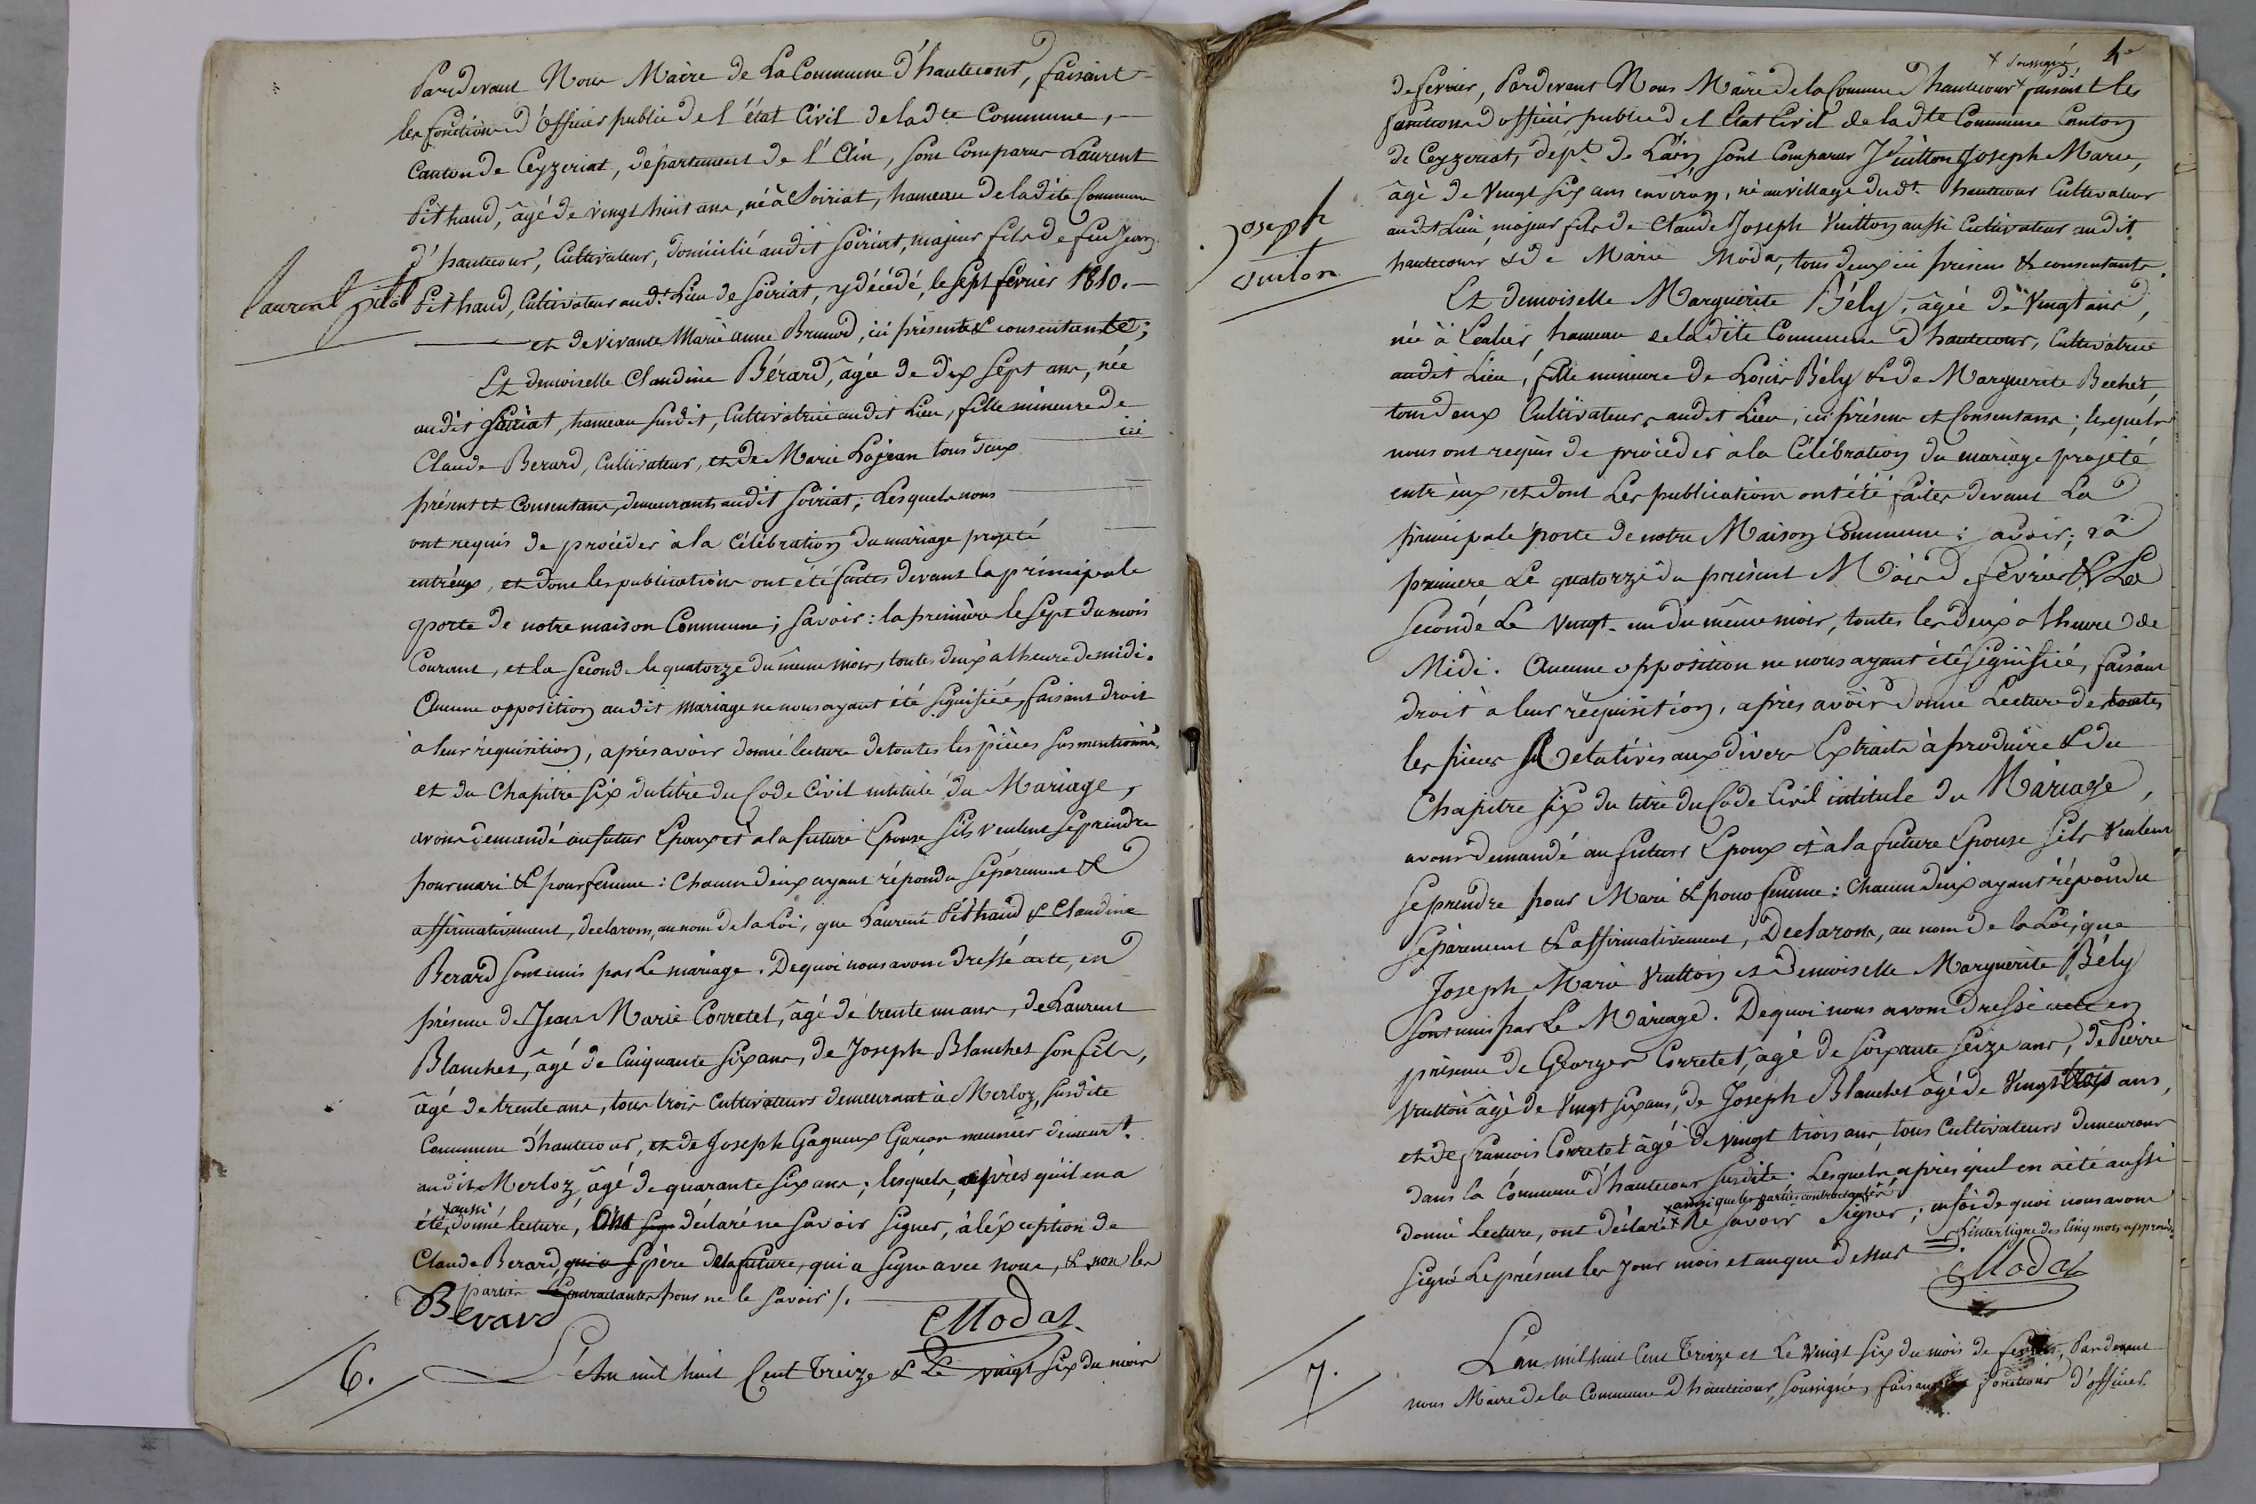 Pardevant Nous Maire de La Commune d'hautecour, faisant
les fonctions d'officier public de l'état Civil de ladte Commune,
Canton de Ceyzeriat, département de l'Ain, sont Comparus Laurent
Pithaud, âgé de vingt huit ans, né à Soiriat, hameau de ladite Commune
d'hautecour, Cultivateur, domicilié audit Soiriat, majeur fils de feu Jean
Laurent pitó
Pithaud, Cultivateur aud.t Lieu de Soiriat, y décédé, le sept fevrier 1810.
et de vivante Marie anne Brunod, ici présente & consentante;
Et demoiselle Claudine Bérard, âgée de dix sept ans, née
audit Soiriat, hameau susdit, Cultivatrice audit Lieu, fille mineure de
Claude Berard, Cultivateur, et de Marie Lajean tous deux ici
présent et Consentans, demeurants audit Soiriat; Lesquels nous
ont requis de procéder à la Célébration du mariage projeté
entr'eux, et dont les publications ont été faites devant la principale
porte de notre maison Commune; savoir: la première le sept du mois
Courant, et la seconde le quatorze du même mois, toutes deux à lheure de midi.
Aucune opposition audit mariage ne nous ayant été signifiée, faisant droit
à leur réquisition, après avoir donné lecture de toutes les pièces susmentionnés,
et du Chapitre six du titre du Code Civil intitulé du Mariage,
avons demandé au futur Epoux et à la future Epouse s'ils veulent se prendre
pour mari & pour femme: Chacun d'eux ayant répondu séparément &
affirmativement, declarons, au nom de la Loi, que Laurent Pithaud & Claudine
Berard sont unis par Le mariage. Dequoi nous avons dressé acte, en
présence de Jean Marie Corretel, âgé de trente un ans, de Laurent
Blanchet, âgé de Cinquante six ans, de Joseph Blanchet son fils,
âgé de trente ans, tous trois Cultivateurs demeurant à Merloz, susdite
Commune d'hautecour, et de Joseph Gagneux Garcon meunier demeurt.
audit Merloz, âgé de quarante six ans; lesquels, après qu'il en a
x aussi
été x donné lecture, Ont sign déclaré ne savoir signer, à l'éxception de
Claude Berard, qui a s père de la future, qui a signé avec nous, & non les
parties Contractantes pour ne le savoir /.
Berard
CModas
6.
L'An mil huit Cent treize & Le vingt six du mois
4e
x soussigné
de fevrier, Pardevant Nous Maire de la Commune d'hautecour x faisant les
fonctions d'officier public de l'Etat Civil de la dte Commune Canton
de Ceyzeriat, dépt. de L'ain, sont Comparus Vuitton Joseph Marie,
âgé de Vingt six ans environ, né au village dudt. hautecour Cultivateur
Joseph
Vuiton
audit Lieu, majeur fils de Claude Joseph Vuitton aussi Cultivateur audit
hautecour & de Marie Modas, tous deux ici présens & consentants.
Et demoiselle Marguerite Bély, âgée de Vingt ans,
née à Cealier, hameau de ladite Commune d'hautecour, Cultivatrice
audit Lieu, fille mineure de Louis Bély & de Marguerite Bechet,
tous deux Cultivateurs audit Lieu, ici présens et Consentans; lesquels
nous ont requis de procéder à la Célébration du mariage projeté
entr'eux, et dont Les publications ont été faites devant La
principale porte de notre Maison Commune: savoir; la
premiere, Le quatorze du présent Mois de fevrier & La
seconde Le Vingt-un du même mois, toutes les deux à lheure de
Midi. Aucune opposition ne nous ayant été signifiée, faisant
droit à leur réquisition, après avoir donné Lecture de toutes
les pièces Relatives aux divers Extraits à produire & du
Chapitre six du titre du Code Civil intitulé du Mariage,
avons demandé au futur Epoux et à la future Epouse s'ils Veulent
se prendre pour Mari & pour femme: Chacun d'eux ayant répondu
séparément & affirmativement, Declarons, au nom de la Loi, que
Joseph Marie Vuitton et Demoiselle Marguerite Bély
Sont unis par Le Mariage. Dequoi nous avons dressé acte en
présence de Georges Corretel, âgé de soixante seize ans, de Pierre
Vuitton âgé de Vingt six ans, de Joseph Blanchet âgé de Vingt trois ans,
et de francois Corretel âgé de vingt trois ans, tous Cultivateurs demeurans
dans la Commune d'hautecour susdite. Lesquels, après qu'il en a été aussi
x ainsi que les parties contractantes
donné Lecture, ont déclaré x Ne savoir Signer; en foi de quoi nous avons
signé Le présent les jour mois et an que dessus. L'interligne des Cinq mots approuvé.
CModas
7.
L'an mil huit Cent Treize et Le Vingt six du mois de fevrier, Pardevant
nous Maire de la Commune d'hautecour, soussigné, faisant les fonctions d'officier